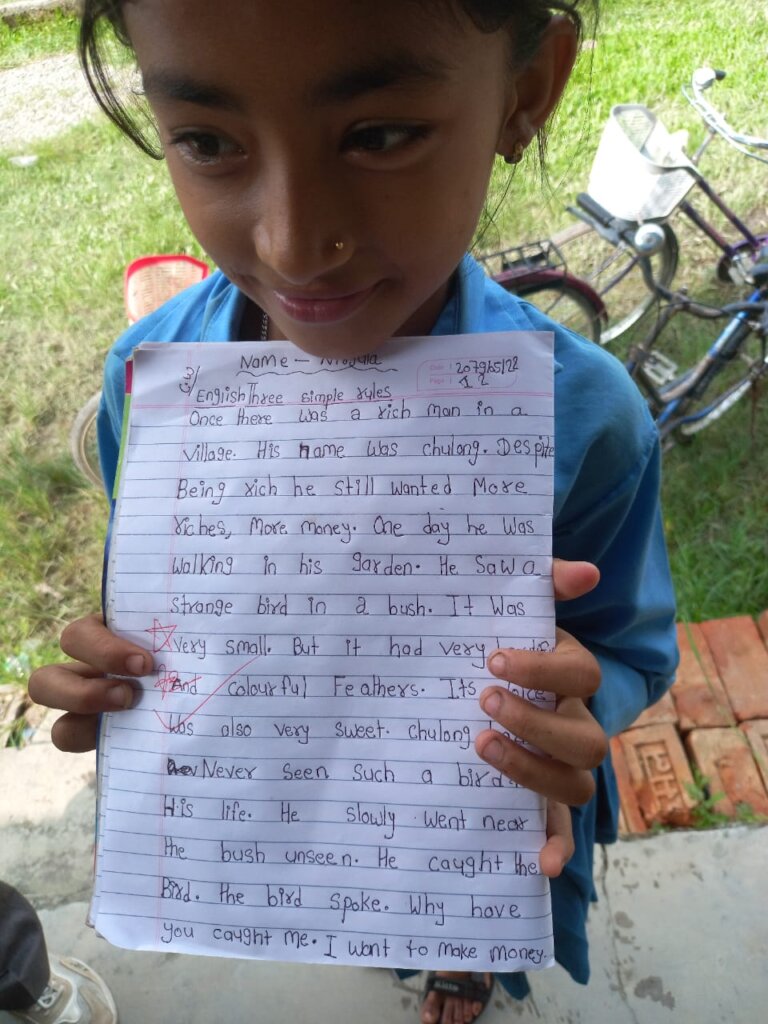 Name -
Date : 2079/05/22
Page : 12
3/
English Three simple rules
Once there was a rich man in a
village. His name was chulong. Despite
Being rich he still wanted More
riches, More money. One day he was
walking in his garden. He saw a
strange bird in a bush. It was
Very small. But it had very
And colourful Feathers. Its
was also very sweet. chulong
Never seen such a bird
His life. He slowly went near
the bush unseen. He caught the
Bird. the bird spoke. Why have
you caught me. I want to make money.